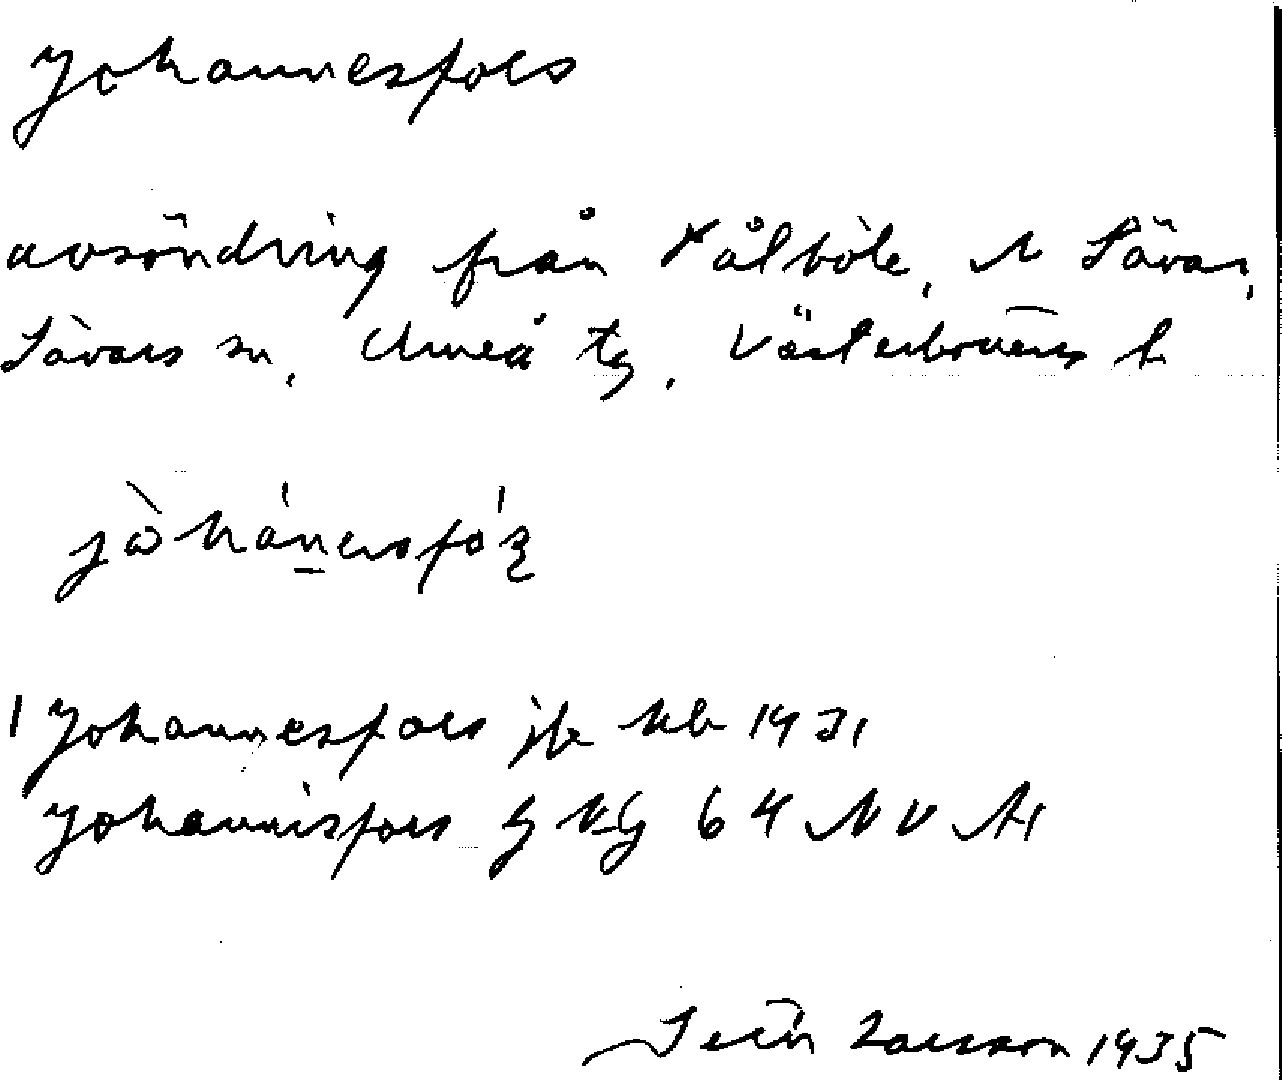 Johannesfors
avsöndring från Pålböle, N Sävar,
Sävars sn, Umeå tg, Västerbottens l
jòhánersfó
Johannesfors jb 1931
Johannisfors G 64 NV
Sven Larsson 1935